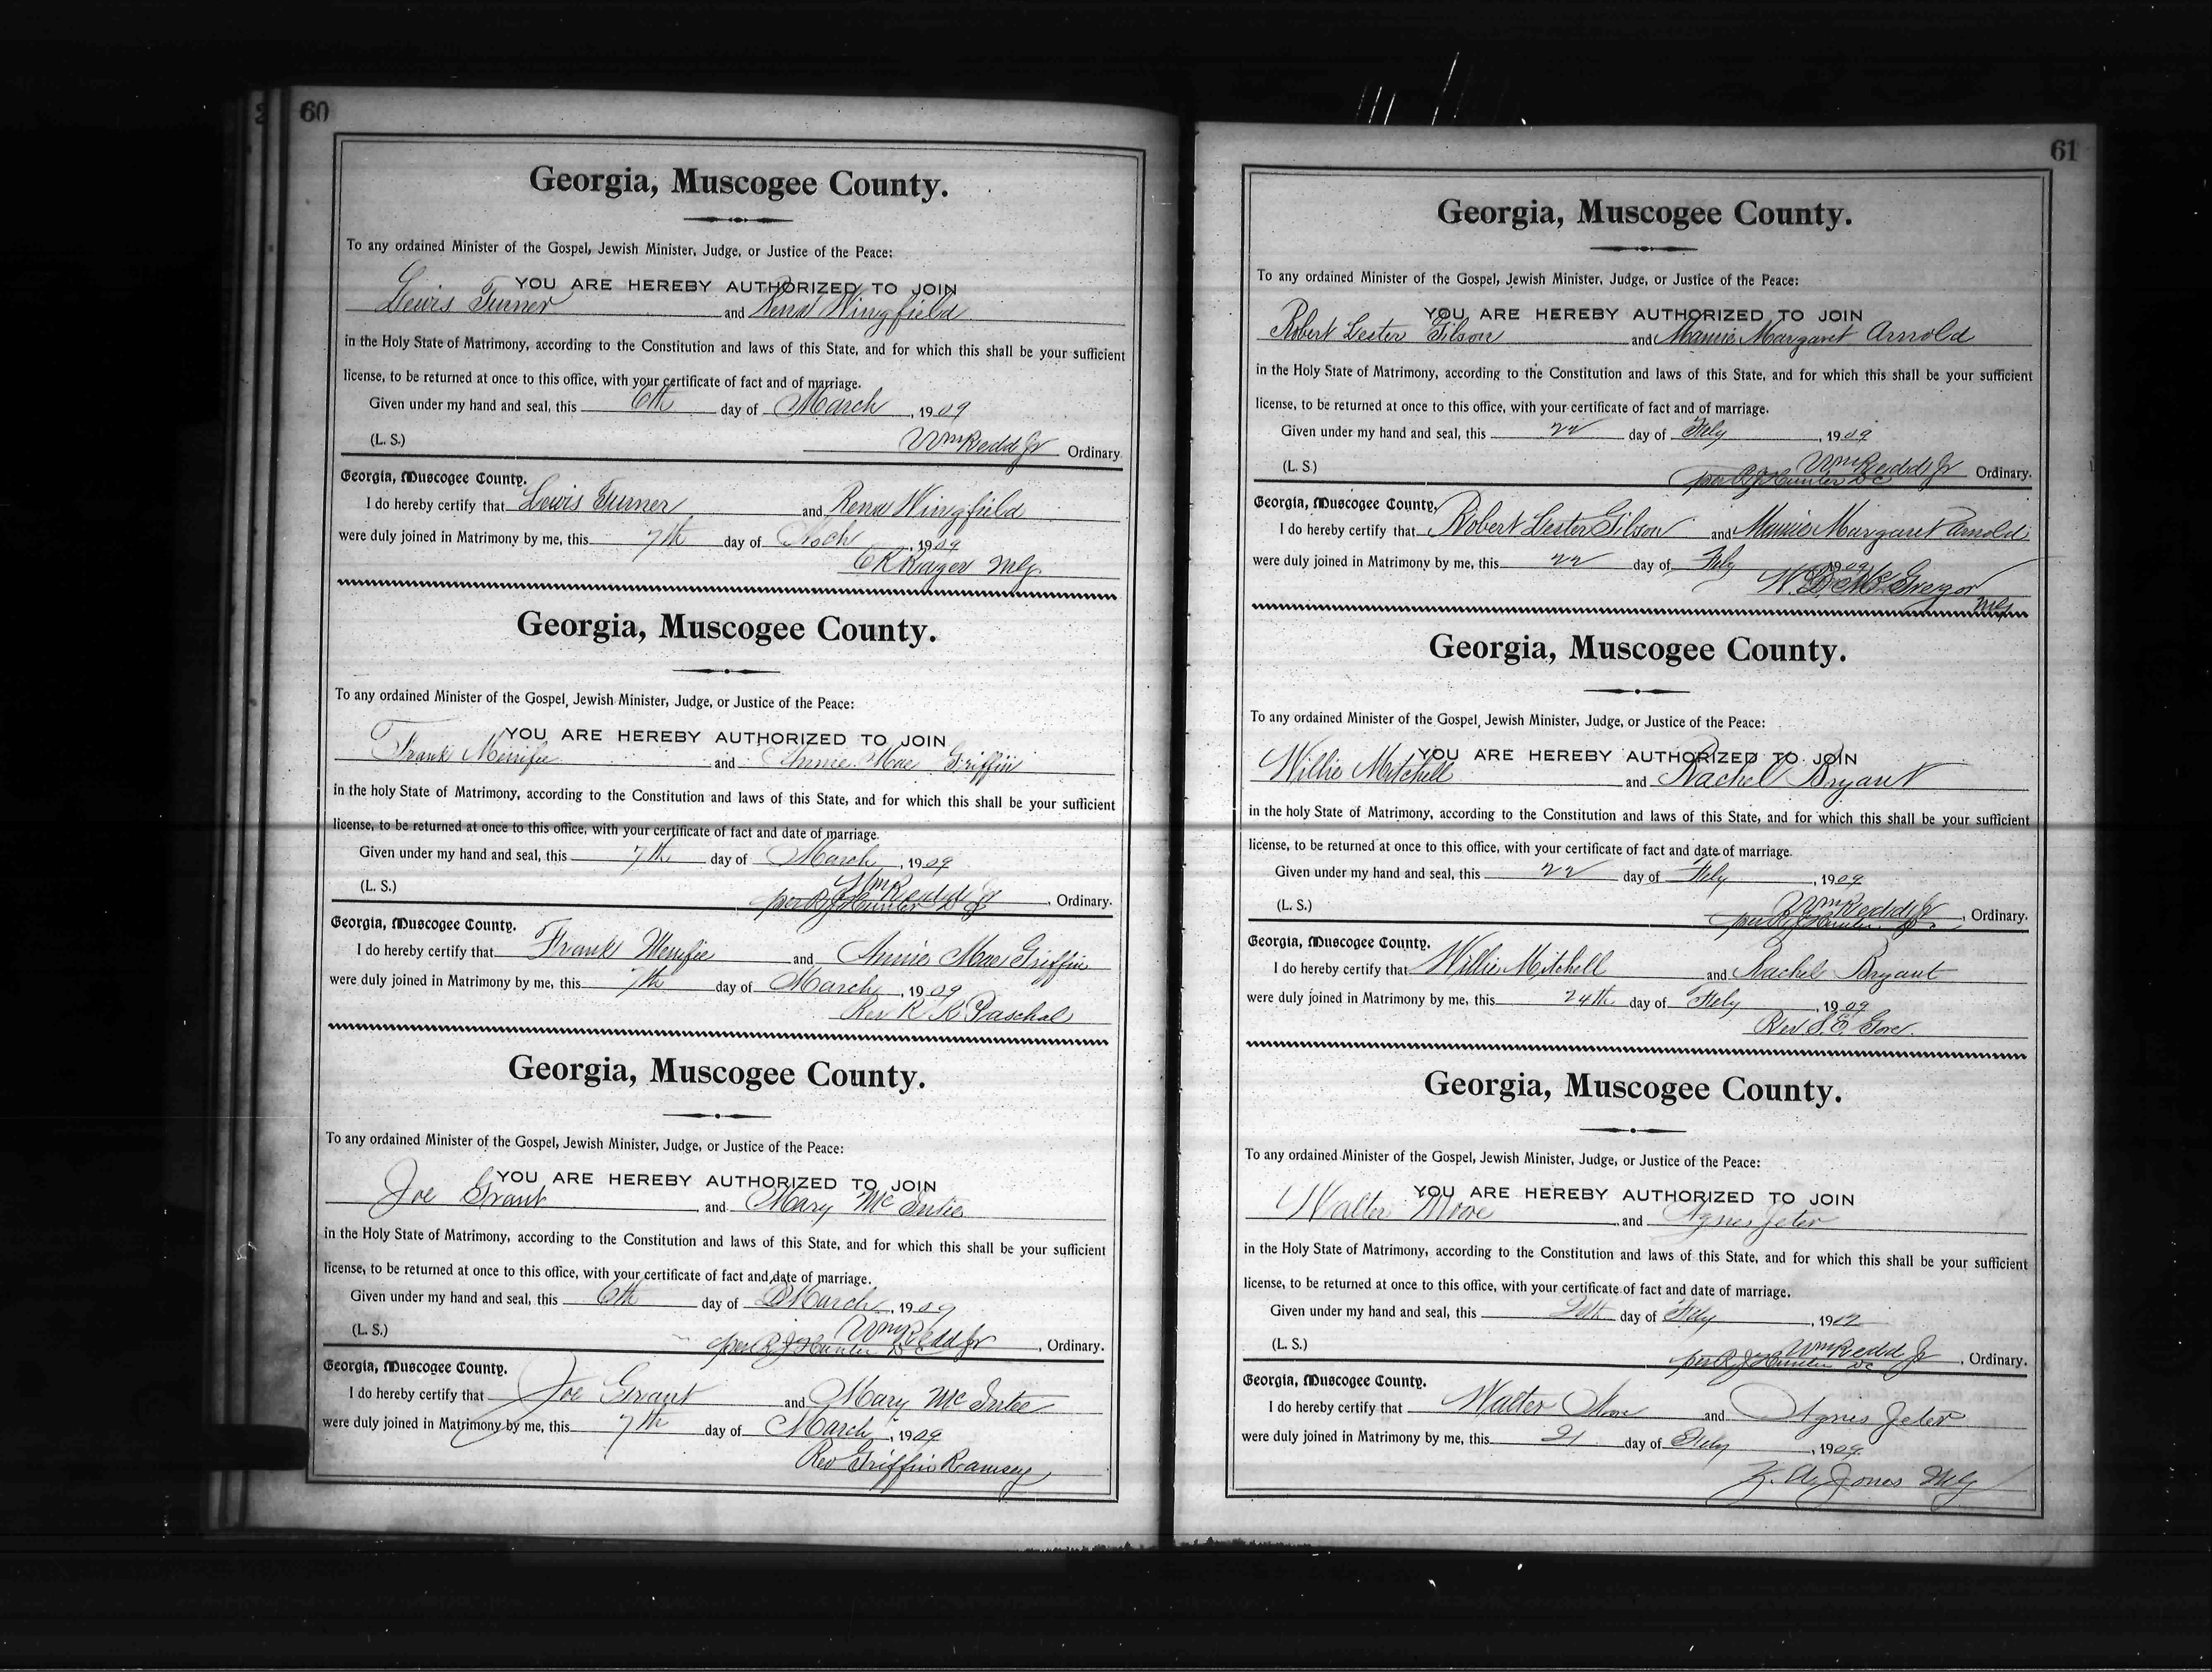 60
Georgia, Muscogee County.
To any ordained Minister of the Gospel, Jewish Minister, Judge, or Justice of the Peace:
YOU ARE HEREBY AUTHORIZED TO JOIN
Lewis Turner and Rena Wingfield
in the Holy State of Matrimony, according to the Constitution and laws of this State, and for which this shall be your sufficient
license, to be returned at once to this office, with your certificate of fact and of marriage.
Given under my hand and seal, this 6th day of March, 1909
(L. S.) Wm Redd Jr Ordinary.
Georgia, Muscogee County.
I do hereby certify that Lewis Turner and Rena Wingfield
were duly joined in Matrimony by me, this 7th day of Mch, 1909
Georgia, Muscogee County.
To any ordained Minister of the Gospel, Jewish Minister, Judge, or Justice of the Peace:
YOU ARE HEREBY AUTHORIZED TO JOIN
Frank Menifee and Annie Mae Griffin
in the holy State of Matrimony, according to the Constitution and laws of this State, and for which this shall be your sufficient
license, to be returned at once to this office, with your certificate of fact and date of marriage.
Given under my hand and seal, this 7th day of March, 1909
(L. S.) Wm Redd Jr, Ordinary.
per R J Hunter
Georgia, Muscogee County.
I do hereby certify that Frank Menifee and Annie Mae Griffin
were duly joined in Matrimony by me, this 7th day of March, 1909
Rev R. R. Paschal
Georgia, Muscogee County.
To any ordained Minister of the Gospel, Jewish Minister, Judge, or Justice of the Peace:
YOU ARE HEREBY AUTHORIZED TO JOIN
Joe Grant and Mary McIntee
in the Holy State of Matrimony, according to the Constitution and laws of this State, and for which this shall be your sufficient
license, to be returned at once to this office, with your certificate of fact and date of marriage.
Given under my hand and seal, this 6th day of March, 1909
(L. S.) Wm Redd Jr, Ordinary.
per R J Hunter DC
Georgia, Muscogee County.
I do hereby certify that Joe Grant and Mary McIntee
were duly joined in Matrimony by me, this 7th day of March, 1909
Rev Griffin Ramsey
61
Georgia, Muscogee County.
To any ordained Minister of the Gospel, Jewish Minister, Judge, or Justice of the Peace:
YOU ARE HEREBY AUTHORIZED TO JOIN
Robert Lester Gilson and Mamie Margaret Arnold
in the Holy State of Matrimony, according to the Constitution and laws of this State, and for which this shall be your sufficient
license, to be returned at once to this office, with your certificate of fact and of marriage.
Given under my hand and seal, this 22 day of Feby, 1909
(L. S.) Wm Redd Jr Ordinary.
per R J Hunter DC
Georgia, Muscogee County.
I do hereby certify that Robert Lester Gilson and Mamie Margaret Arnold
were duly joined in Matrimony by me, this 22 day of Feby, 1909
McGregor
MG
Georgia, Muscogee County.
To any ordained Minister of the Gospel, Jewish Minister, Judge, or Justice of the Peace:
YOU ARE HEREBY AUTHORIZED TO JOIN
Willie Mitchell and Rachel Bryant
in the holy State of Matrimony, according to the Constitution and laws of this State, and for which this shall be your sufficient
license, to be returned at once to this office, with your certificate of fact and date of marriage.
Given under my hand and seal, this 22 day of Feby, 1909
(L. S.) Wm Redd Jr, Ordinary.
per R J Hunter
Georgia, Muscogee County.
I do hereby certify that Willie Mitchell and Rachel Bryant
were duly joined in Matrimony by me, this 24th day of Feby, 1909
Rev S. E. Gore
Georgia, Muscogee County.
To any ordained Minister of the Gospel, Jewish Minister, Judge, or Justice of the Peace:
YOU ARE HEREBY AUTHORIZED TO JOIN
Walter Moore and Agnes Jeter
in the Holy State of Matrimony, according to the Constitution and laws of this State, and for which this shall be your sufficient
license, to be returned at once to this office, with your certificate of fact and date of marriage.
Given under my hand and seal, this 20th day of Feby, 1909
(L. S.) Wm Redd Jr, Ordinary.
per R J Hunter DC
Georgia, Muscogee County.
I do hereby certify that Walter Moore and Agnes Jeter
were duly joined in Matrimony by me, this 21 day of Feby, 1909
Jones MG